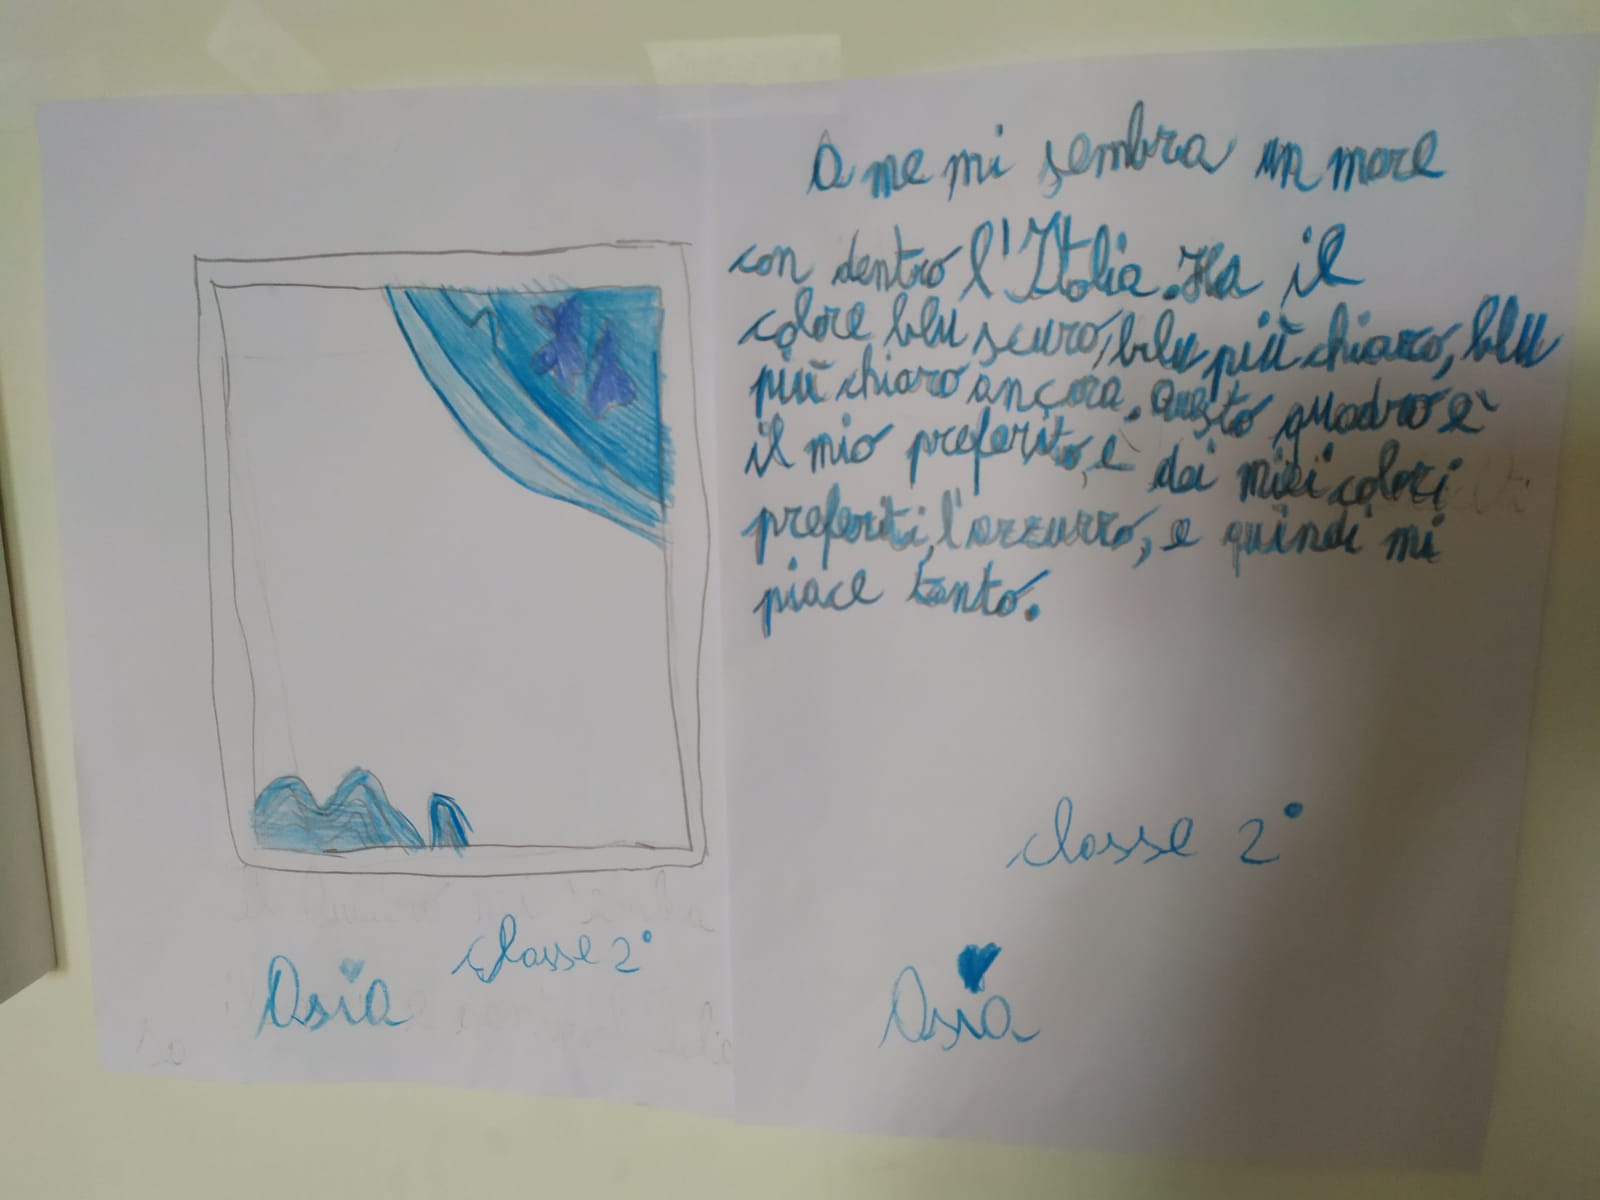 A me mi sembra un mare
con dentro l'Italia. Ha il
colore blu scuro, blu più chiaro, blu
più chiaro ancora. Questo quadro è
il mio preferito, è dei miei colori
preferiti, l'azzurro, e quindi mi
piace tanto.
classe 2°
Asia
classe 2°
Asia